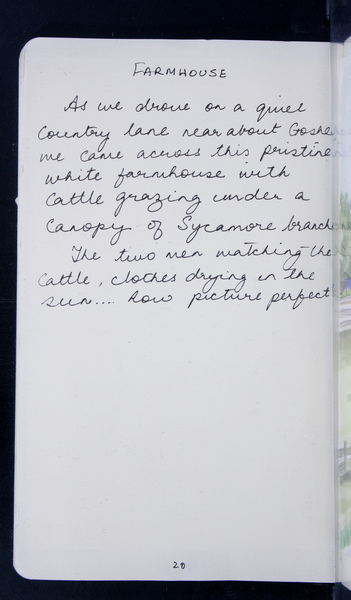 FARMHOUSE
As we drove on a quiet
Country lane near about Goshen
we came across this pristine
white farmhouse with
Cattle grazing under a
Canopy of Sycamore branches
The two men watching the
Cattle, clothes drying in the
sun.... How picture perfect
20